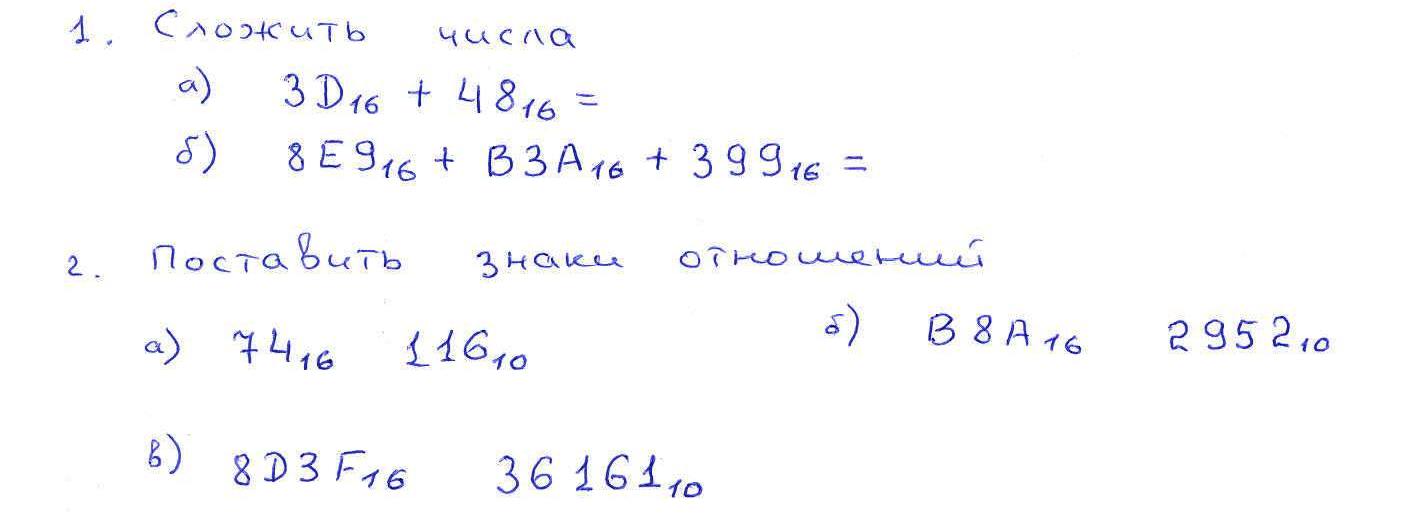 1. Сложить числа
а) 3D₁₆ + 48₁₆ =
б) 8E9₁₆ + B3A₁₆ + 399₁₆ =
2. Поставить знаки отношений
а) 74₁₆ 116₁₀ б) B8A₁₆ 2952₁₀
в) 8D3F₁₆ 36161₁₀